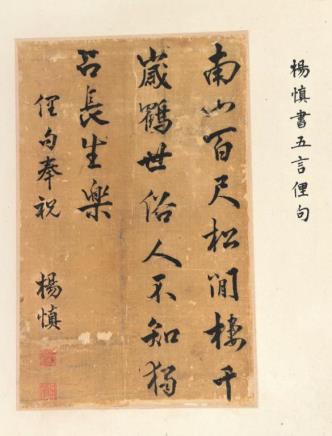 楊慎書五言俚句
南山百尺松閒棲千
歲鶴世俗人不知獨
占長生樂
俚句奉祝
楊慎